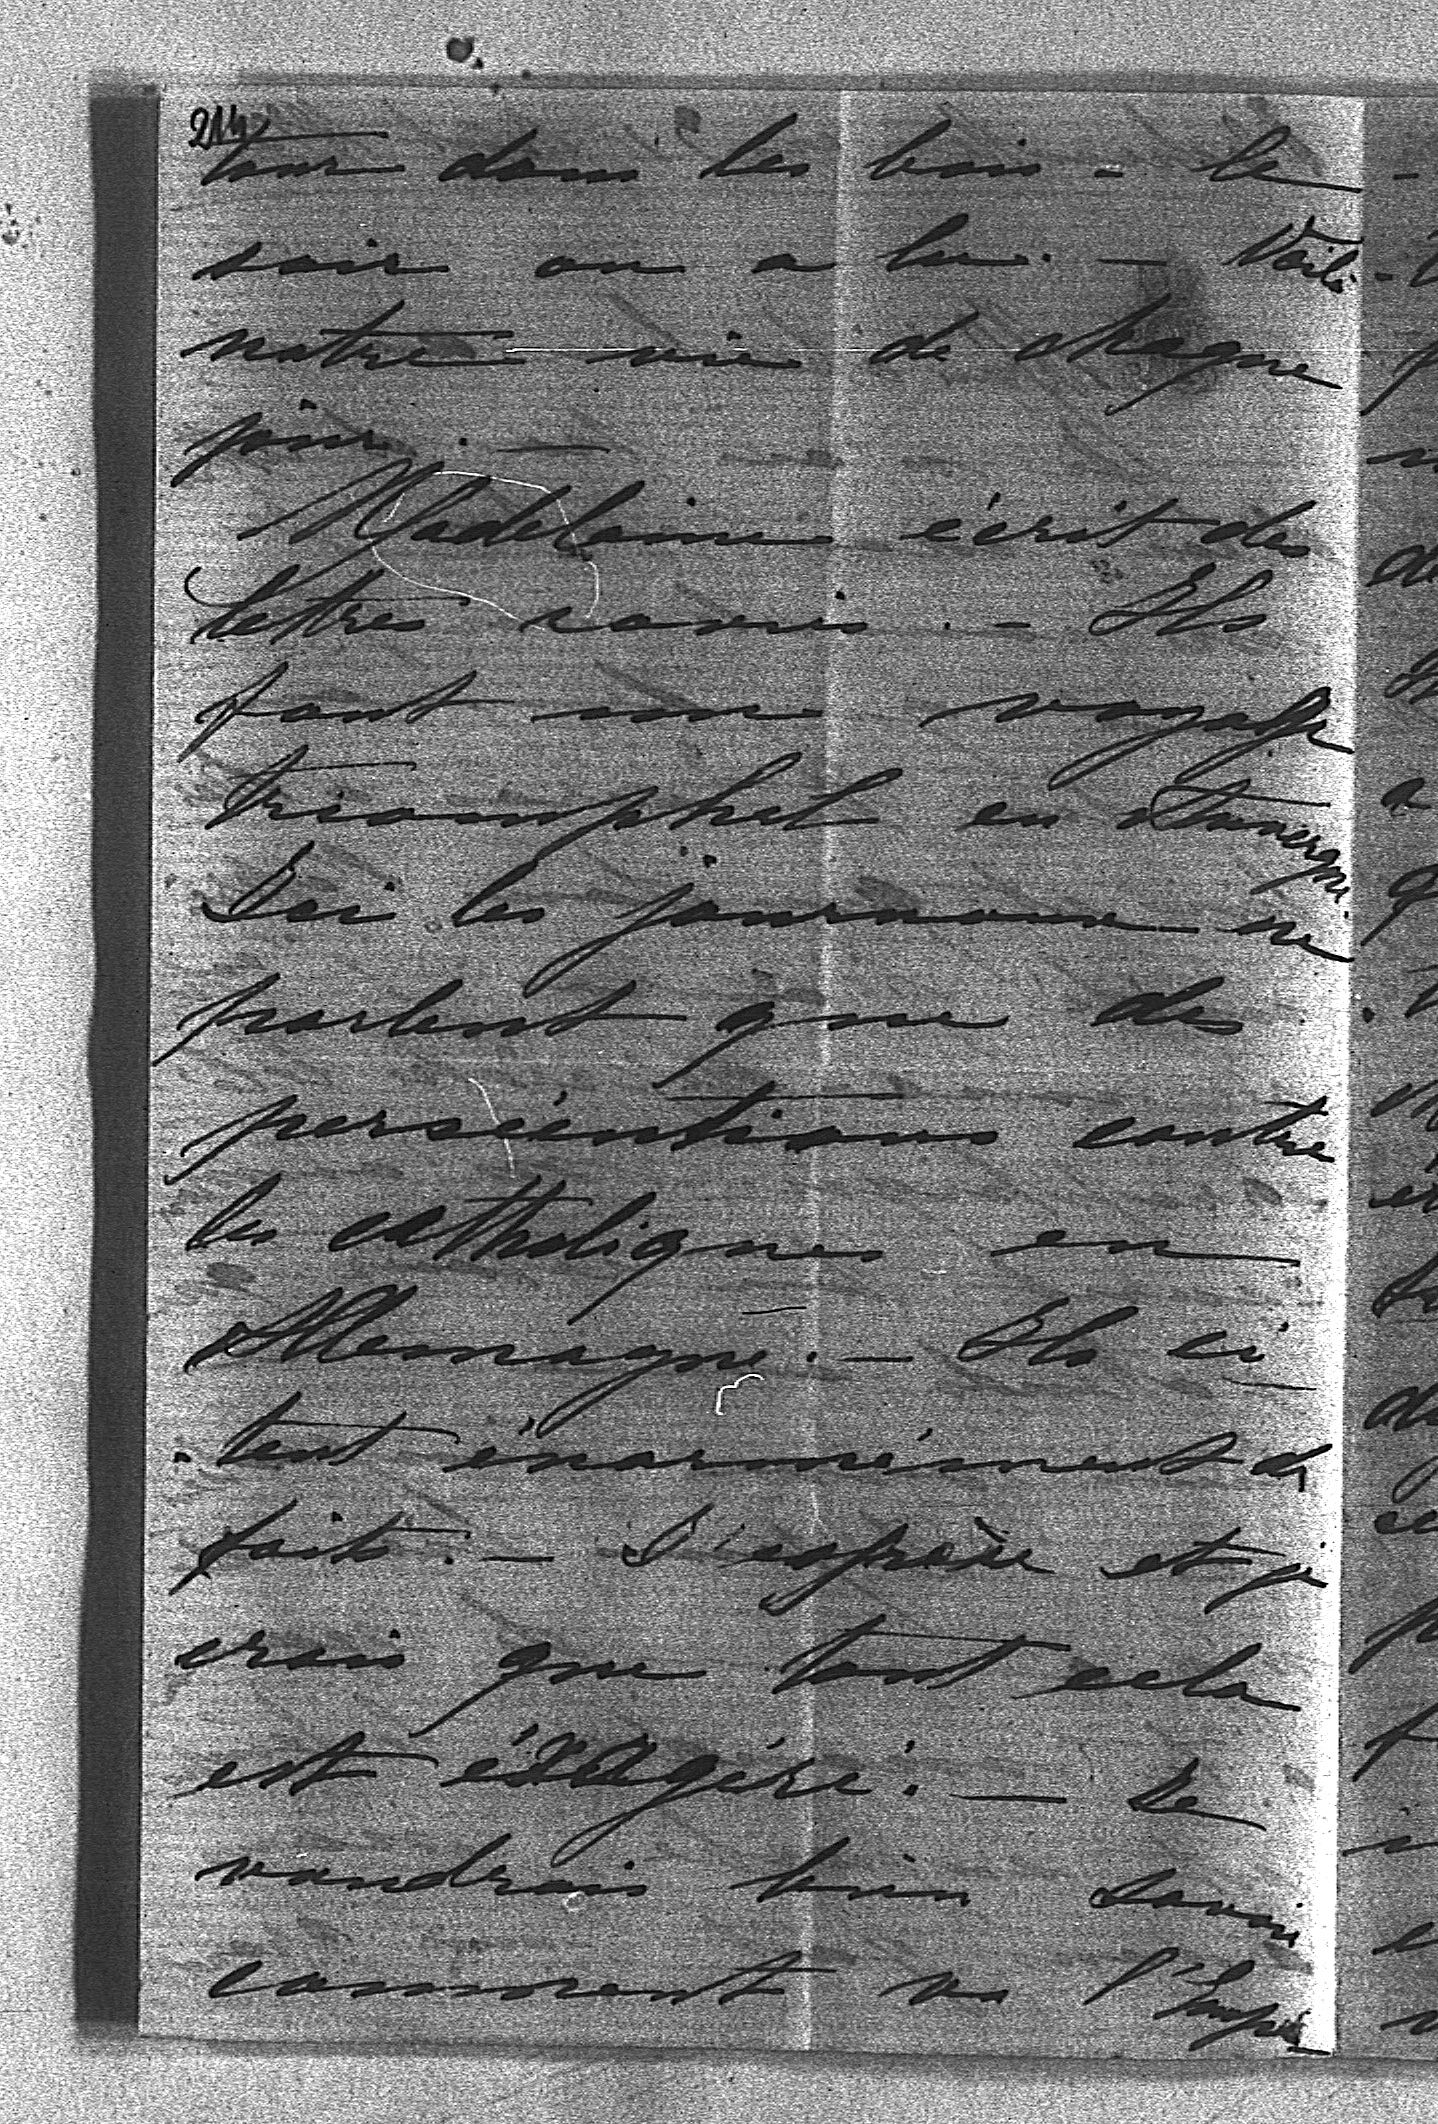 214
tour dans les bois - le
soir on a lu. - Voilà
notre vie de chaque
jour. -
Madelaine écrit des
lettres ravies. - Ils
font une voyage
triomphal en Auvergne.
Ici les journaux ne
parlent que des
persécutions contre
les catholiques en
Allemagne. - Ils ci
tent énormément de
faits. - J'espère et je
crois que tout cela
est éxagéré. - Je
voudrais bien savoir
comment va l'Impé